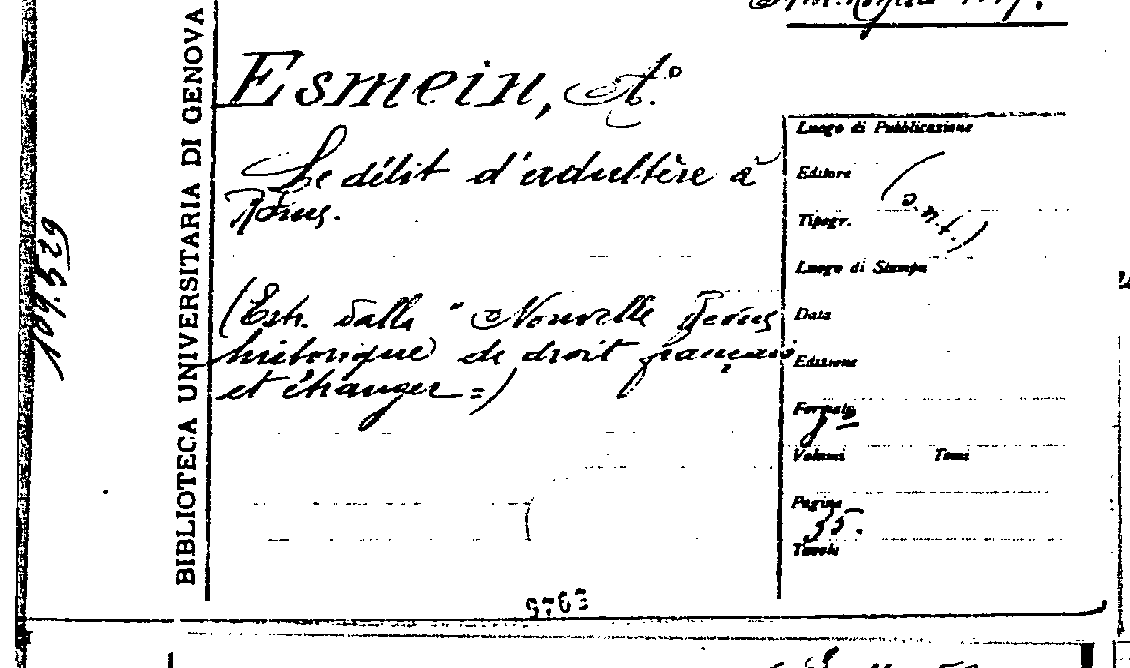 BIBLIOTECA UNIVERSITARIA DI GENOVA
Esmein, A.°
Le délit d'adultère à
Rome.
(Estr. dalla " Nouvelle Revue
historique de droit français
et étranger =)
Luogo di Pubblicazione
Editore
(s.n.t.)
Tipogr.
Luogo di Stampa
Data
Edizione
Formato
8º
Volumi Tomi
Pagine
35.
Tavole
9763